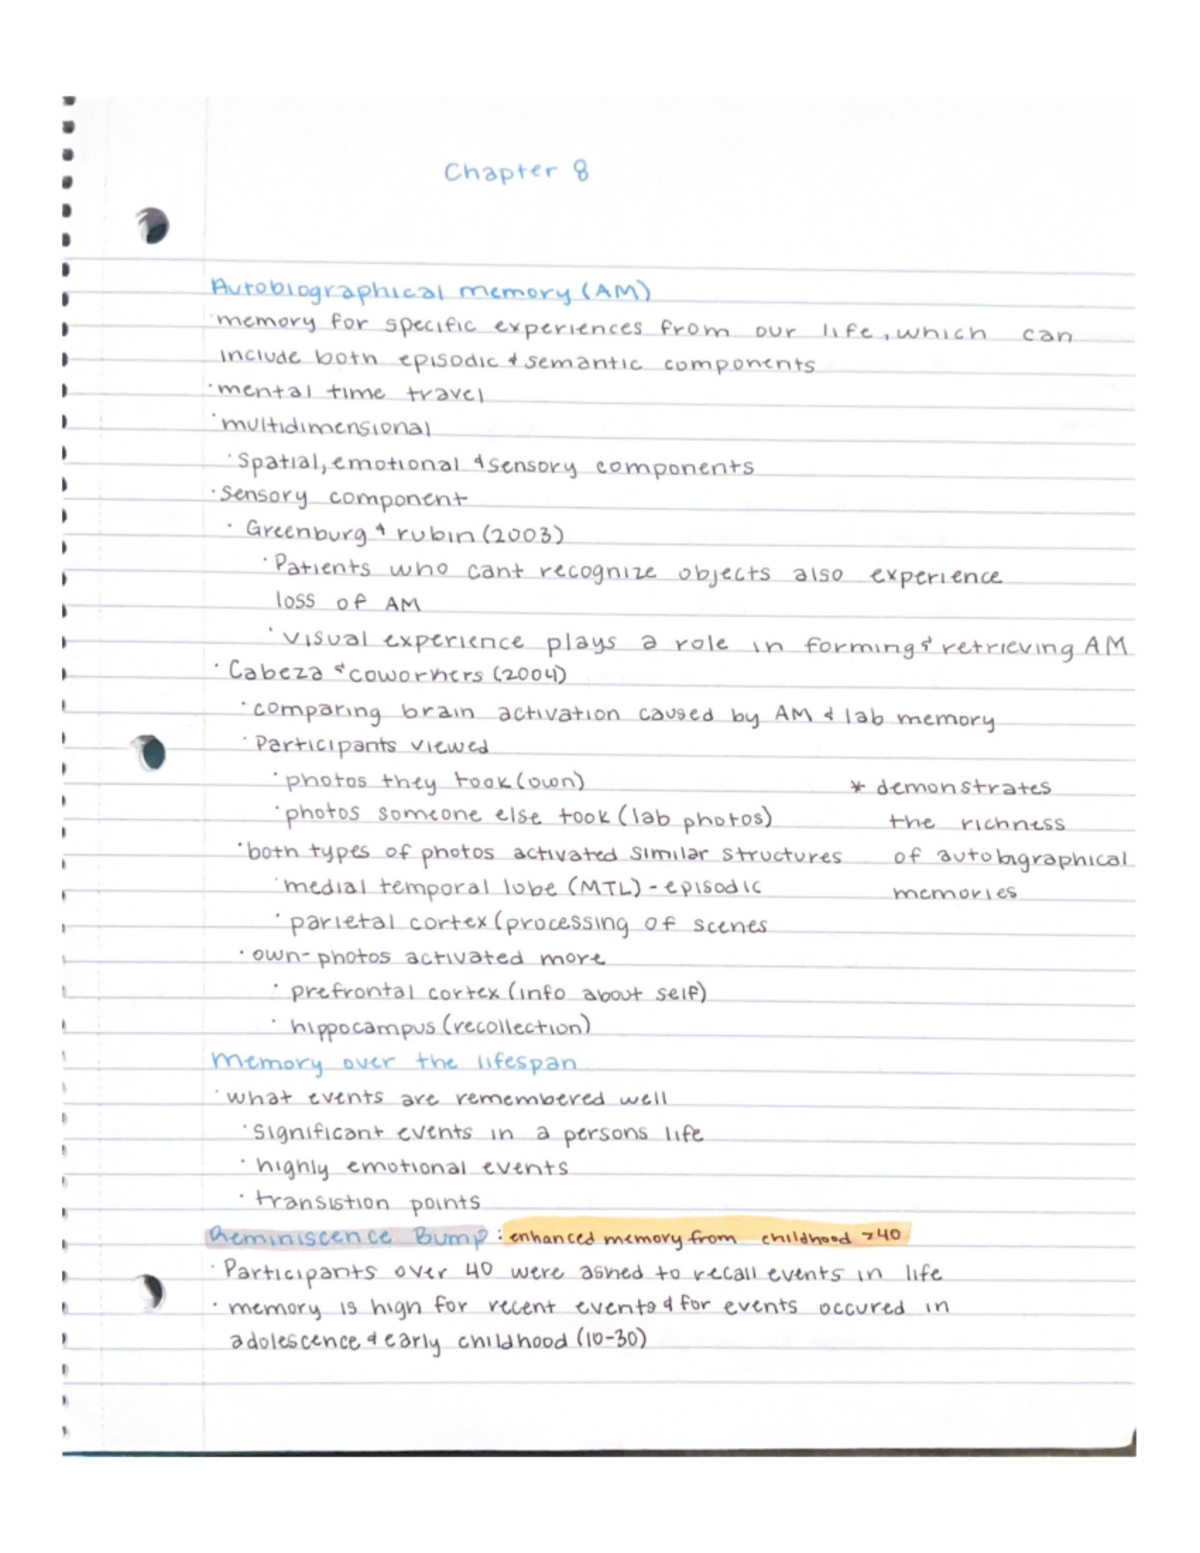 Chapter 8
Autobiographical memory (AM)
·memory for specific experiences from our life, which can
include both episodic & semantic components
·mental time travel
·multidimensional
·Spatial, emotional & sensory components
·Sensory component
· Greenburg & rubin (2003)
·Patients who cant recognize objects also experience
loss of AM
·visual experience plays a role in forming & retrieving AM
· Cabeza & coworkers (2004)
·comparing brain activation caused by AM & lab memory
·Participants viewed
·photos they took (own)
·photos someone else took (lab photos)
·both types of photos activated similar structures
·medial temporal lobe (MTL) - episodic
·parietal cortex (processing of scenes
* demonstrates
the richness
of autobiographical
memories
·own-photos activated more
· prefrontal cortex (info about self)
· hippocampus (recollection)
Memory over the lifespan
·what events are remembered well
·Significant events in a persons life
· highly emotional events
· transistion points
Reminiscence Bump : enhanced memory from childhood >40
·Participants over 40 were asked to recall events in life
· memory is high for recent events & for events occured in
adolescence & early childhood (10-30)